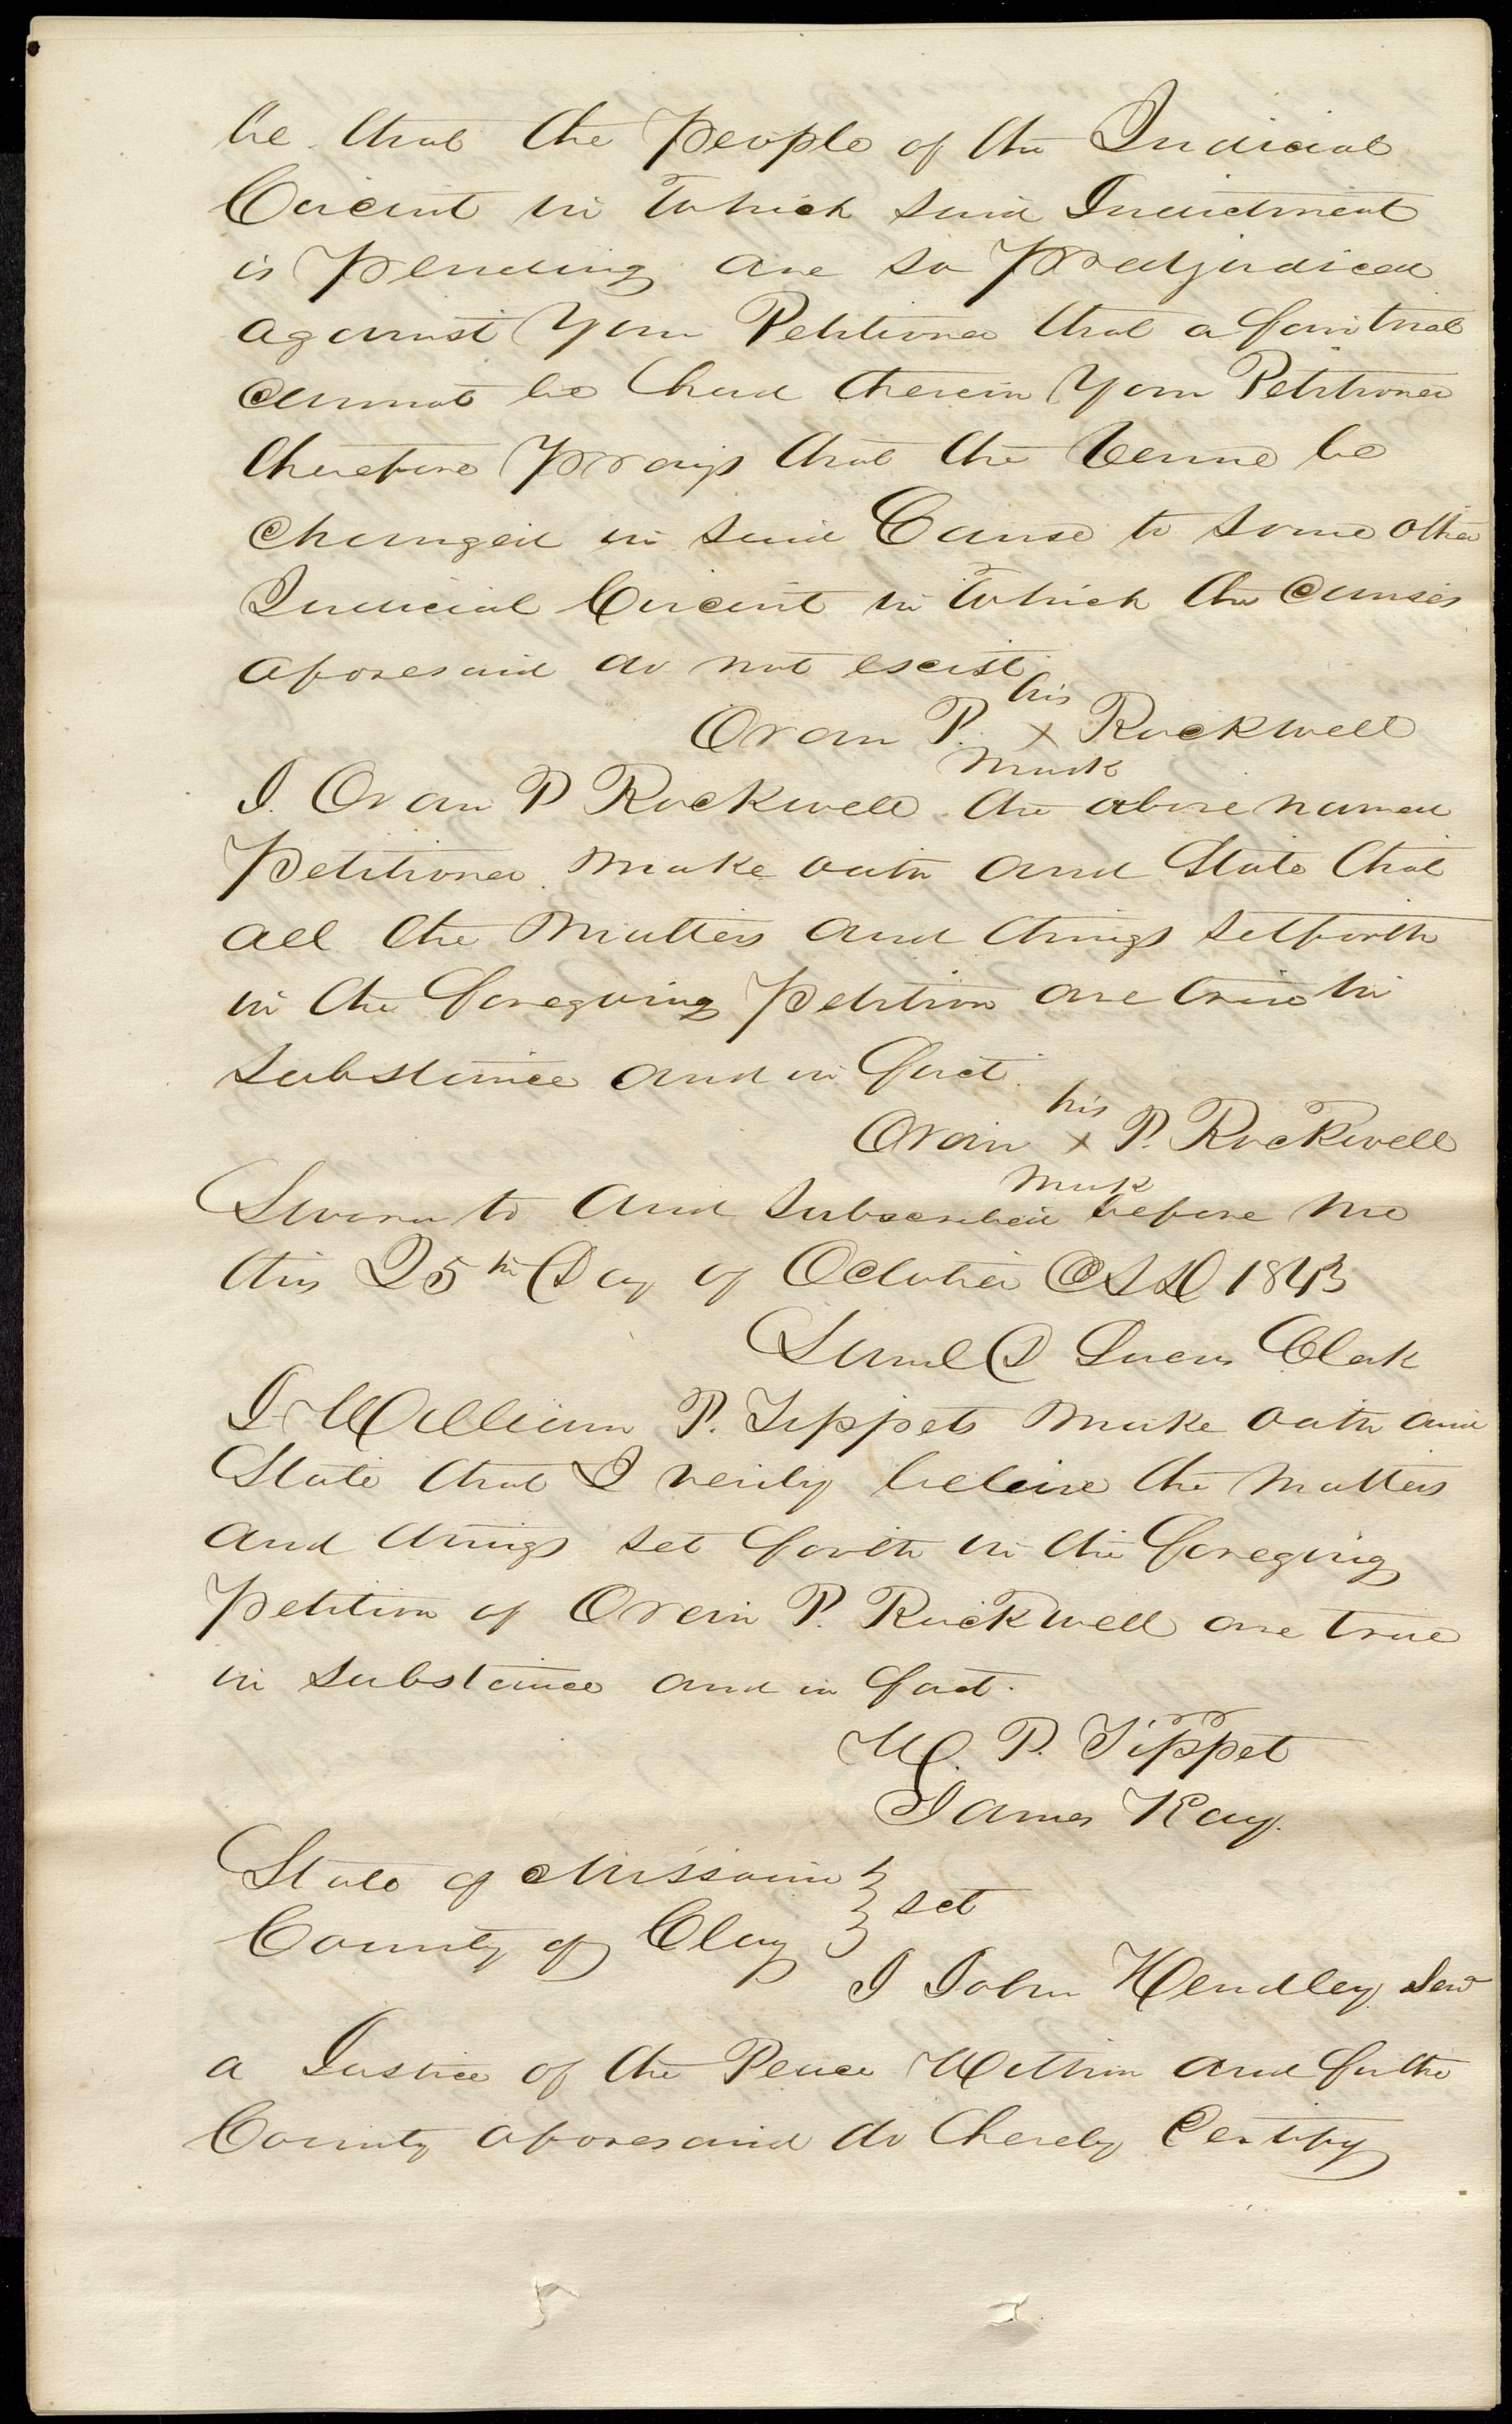 be that the People of the Judicial
Circuit in which said Indictment
is Pending are so Predjudiced
against Your Petitioner that a fair trial
cannot be had therein Your Petitioner
therefore Prays that the Venue be
changed in said Cause to some other
Judicial Circuit in which the causes
aforesaid do not escist
his
Orain P. x Rockwell
mark
I. Orain P Rockwell the above named
Petitioner make oath and State that
all the Matters and things setforth
in the foregoing Petition are true in
substance and in fact.
his
Orain x P. Rockwell
mark
Sworn to and subscribed before me
this 25th Day of October AD 1843
Saml D Lucas Clerk
I William P. Tippets make oath and
State that I verily beleive the matters
and things set forth in the foregoing
Petition of Orain P. Rockwell are true
in substance and in fact.
W. P. Tippet
James Kay.
State of Missouri
County of Clay } sct
I John Hendley Senr
a Justice of the Peace Within and forthe
County aforesaid do hereby Certify